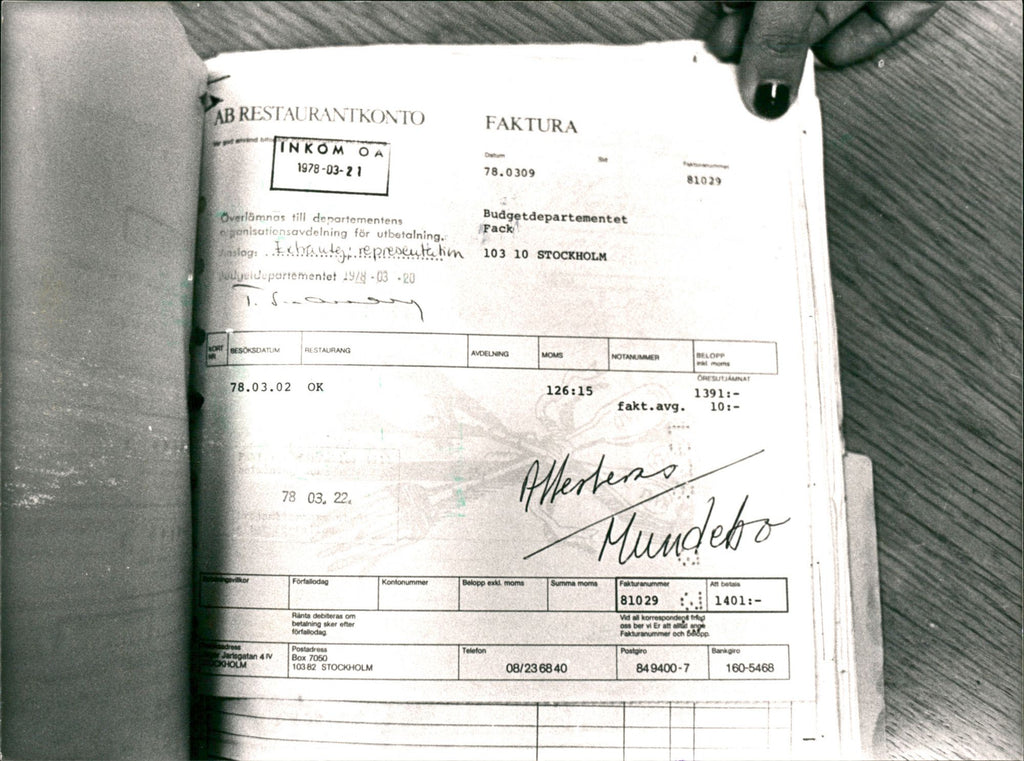 AB RESTAURANTKONTO
FAKTURA
INKOM OA
1978-03-21
Datum
Fakturanummer
78.0309
81029
Överlämnas till departementens
organisationsavdelning för utbetalning.
Anslag: Extrautg. representation
Budgetdepartementet 1978-03-20
Budgetdepartementet
Fack
103 10 STOCKHOLM
KORT NR BESÖKSDATUM RESTAURANG AVDELNING MOMS NOTANUMMER BELOPP inkl. moms
ÖRESUTJÄMNAT
78.03.02 OK 126:15 1391:-
fakt.avg. 10:-
78 03. 22.
Attesteras
Mundebo
Betalningsvillkor Förfallodag Kontonummer Belopp exkl. moms Summa moms Fakturanummer Att betala
81029 1401:-
Ränta debiteras om
betalning sker efter
förfallodag.
Vid all korrespondens
oss ber vi Er att alltid ange
Fakturanummer och belopp.
Jarlsgatan 4 IV
STOCKHOLM
Postadress
Box 7050
103 82 STOCKHOLM
Telefon
08/23 68 40
Postgiro
84 9400-7
Bankgiro
160-5468